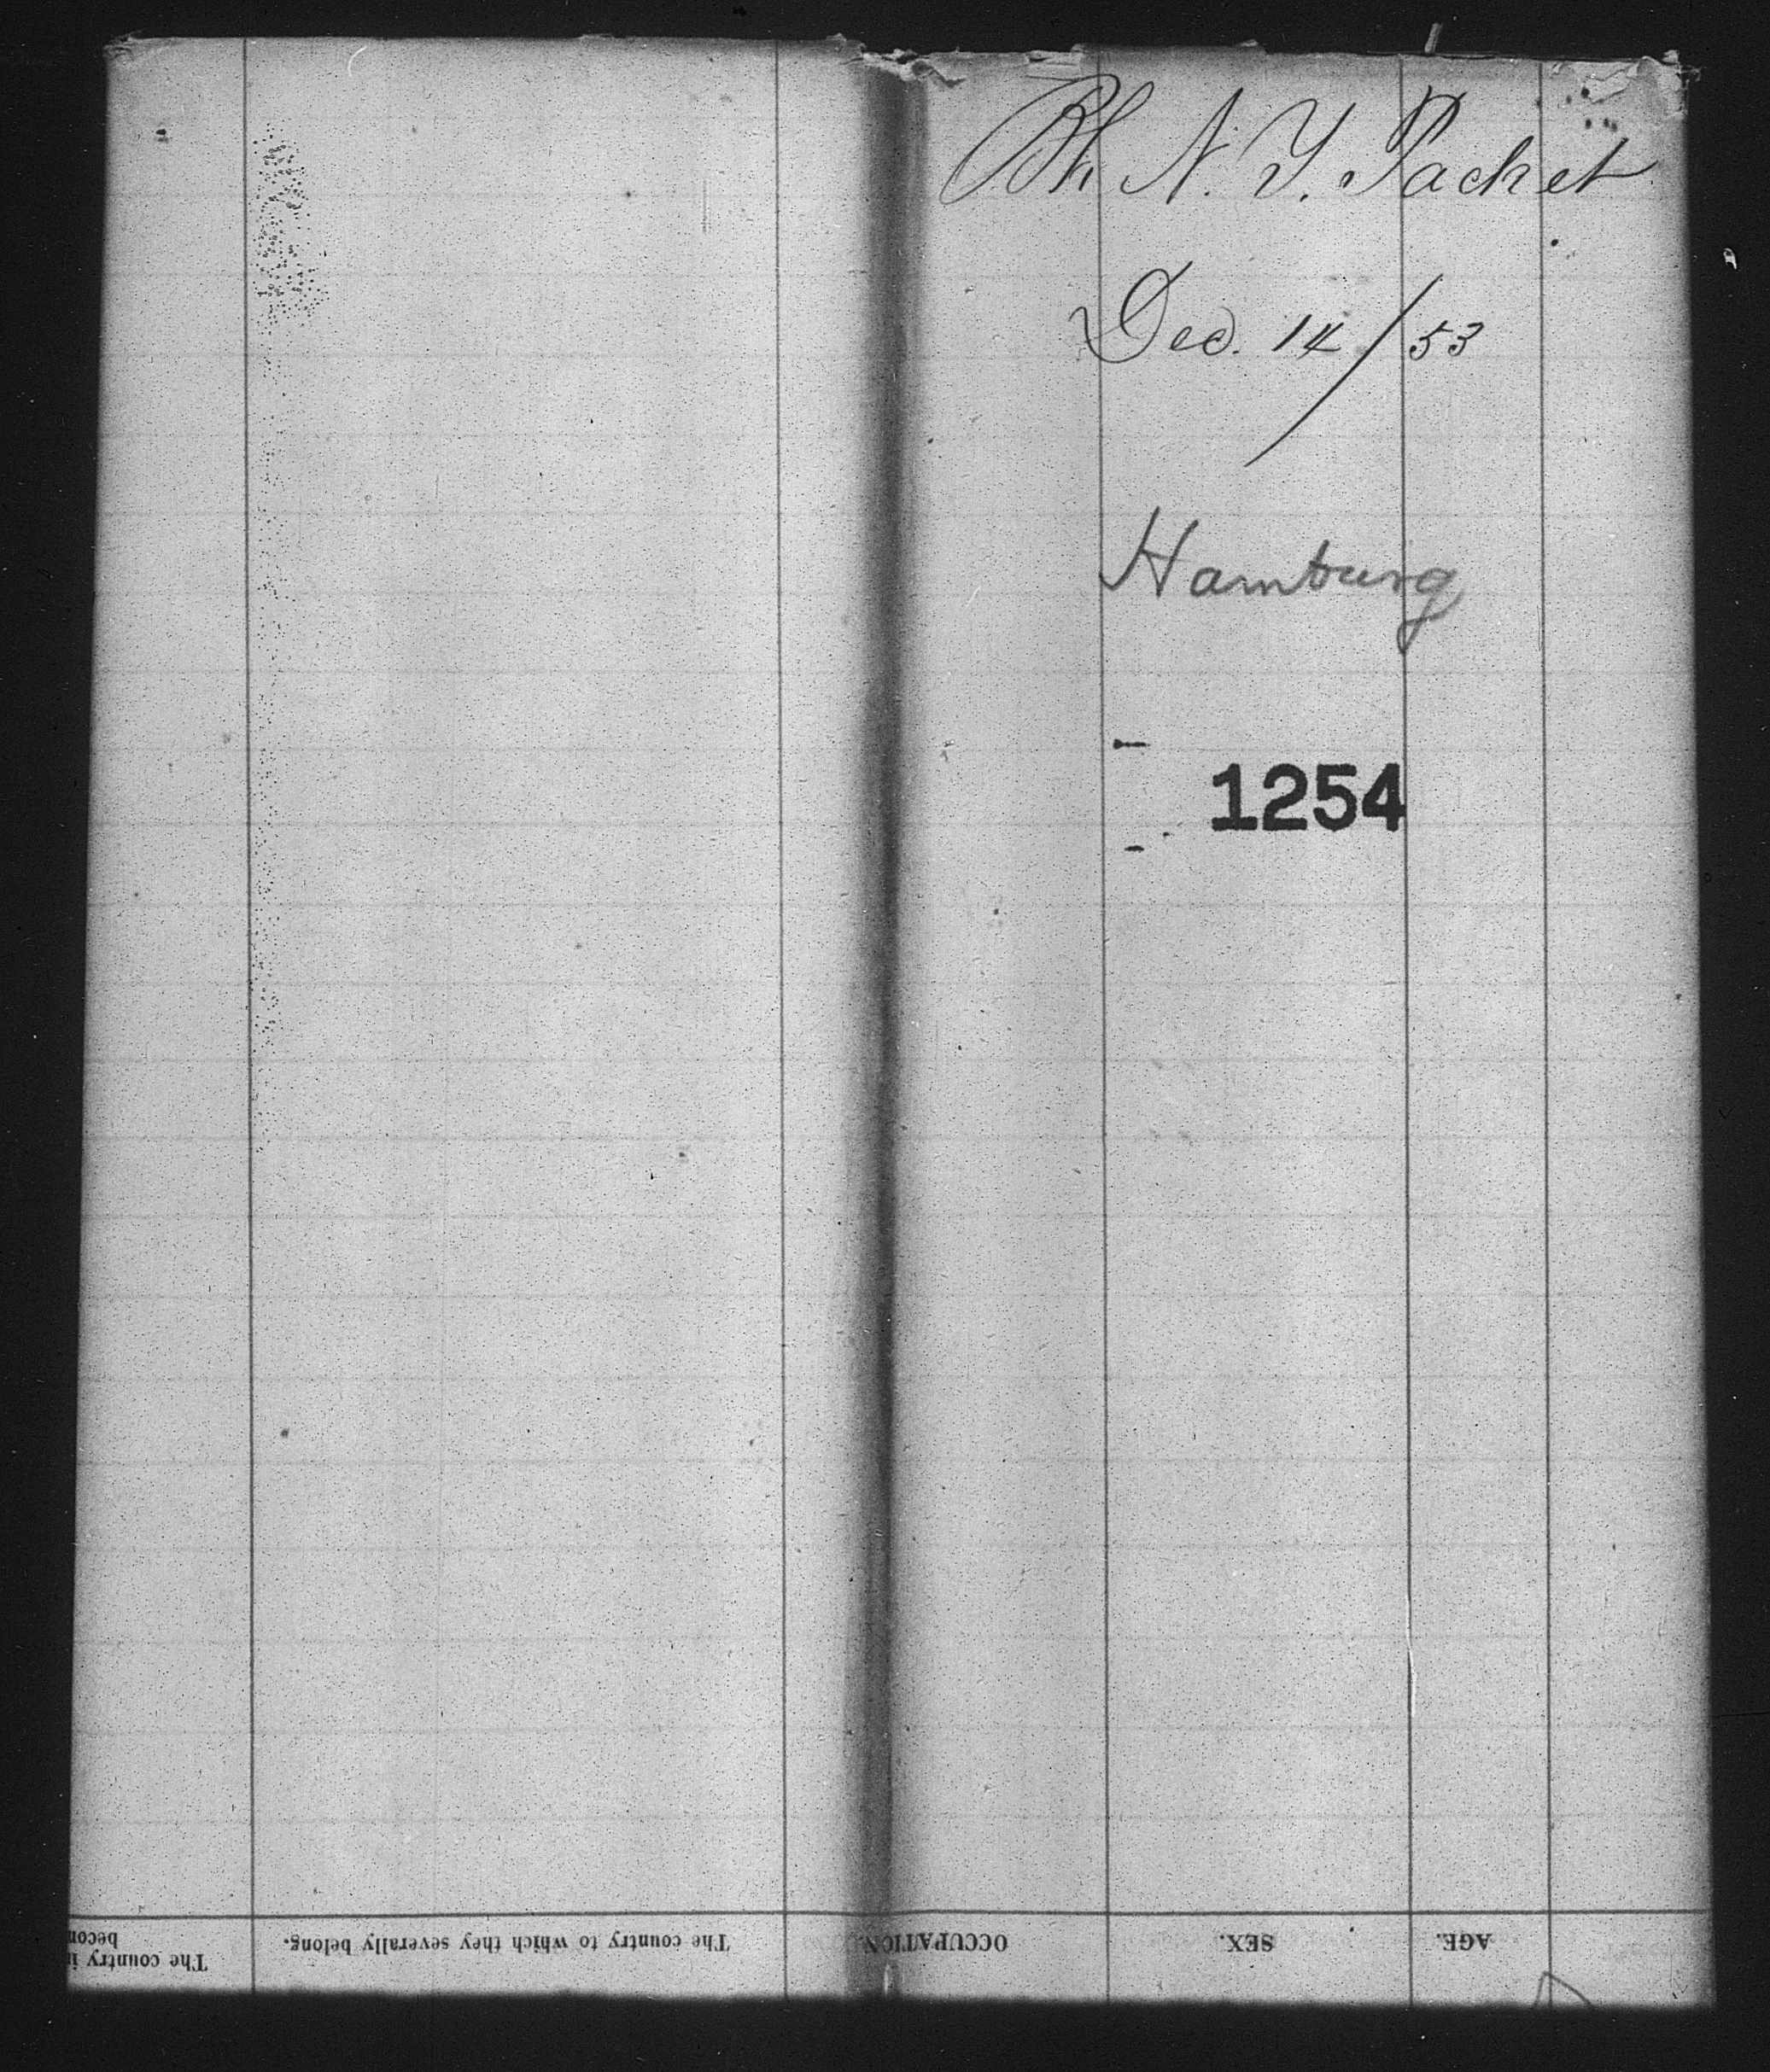 Bk N. Y. Packet
Dec. 14/53
Hamburg
1254
AGE.
SEX.
OCCUPATION.
The country to which they severally belong.
The country i
becom